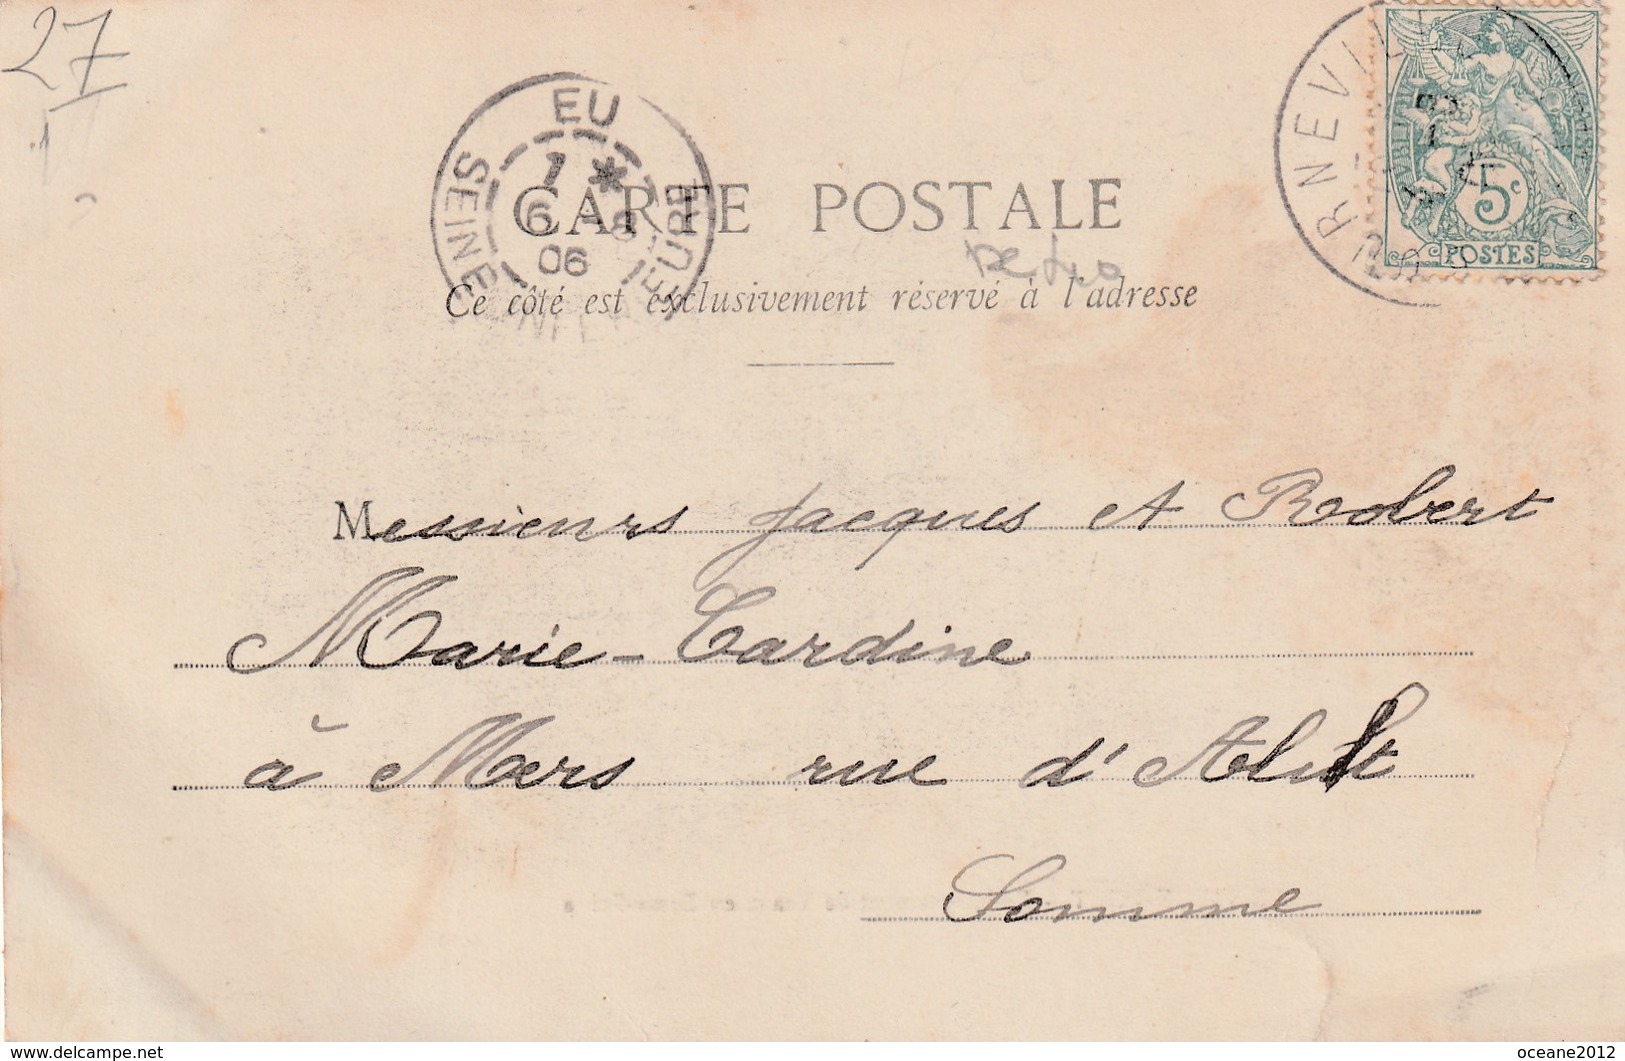 27
EU
SEINE INFERIEURE
1 *
6 - 8
06
RNEVIL
5c
POSTES
CARTE POSTALE
Ce côté est exclusivement réservé à l'adresse
Messieurs Jacques et Robert
Marie-Cardine
à Mers rue d'Ault
Somme
www.delcampe.net
oceane2012